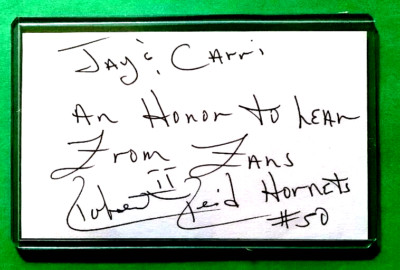 Jay & Carri
An Honor to hear
From Fans
Robert Reid II Hornets
#50